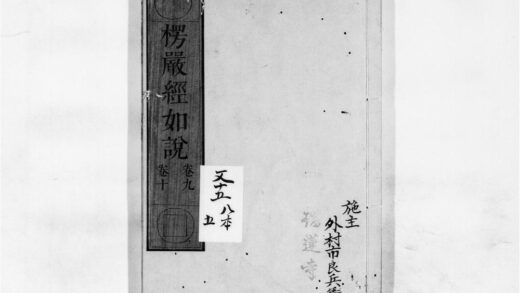 楞嚴經如說
卷九
卷十
文十五
八本
五
施主
外村市良兵衛